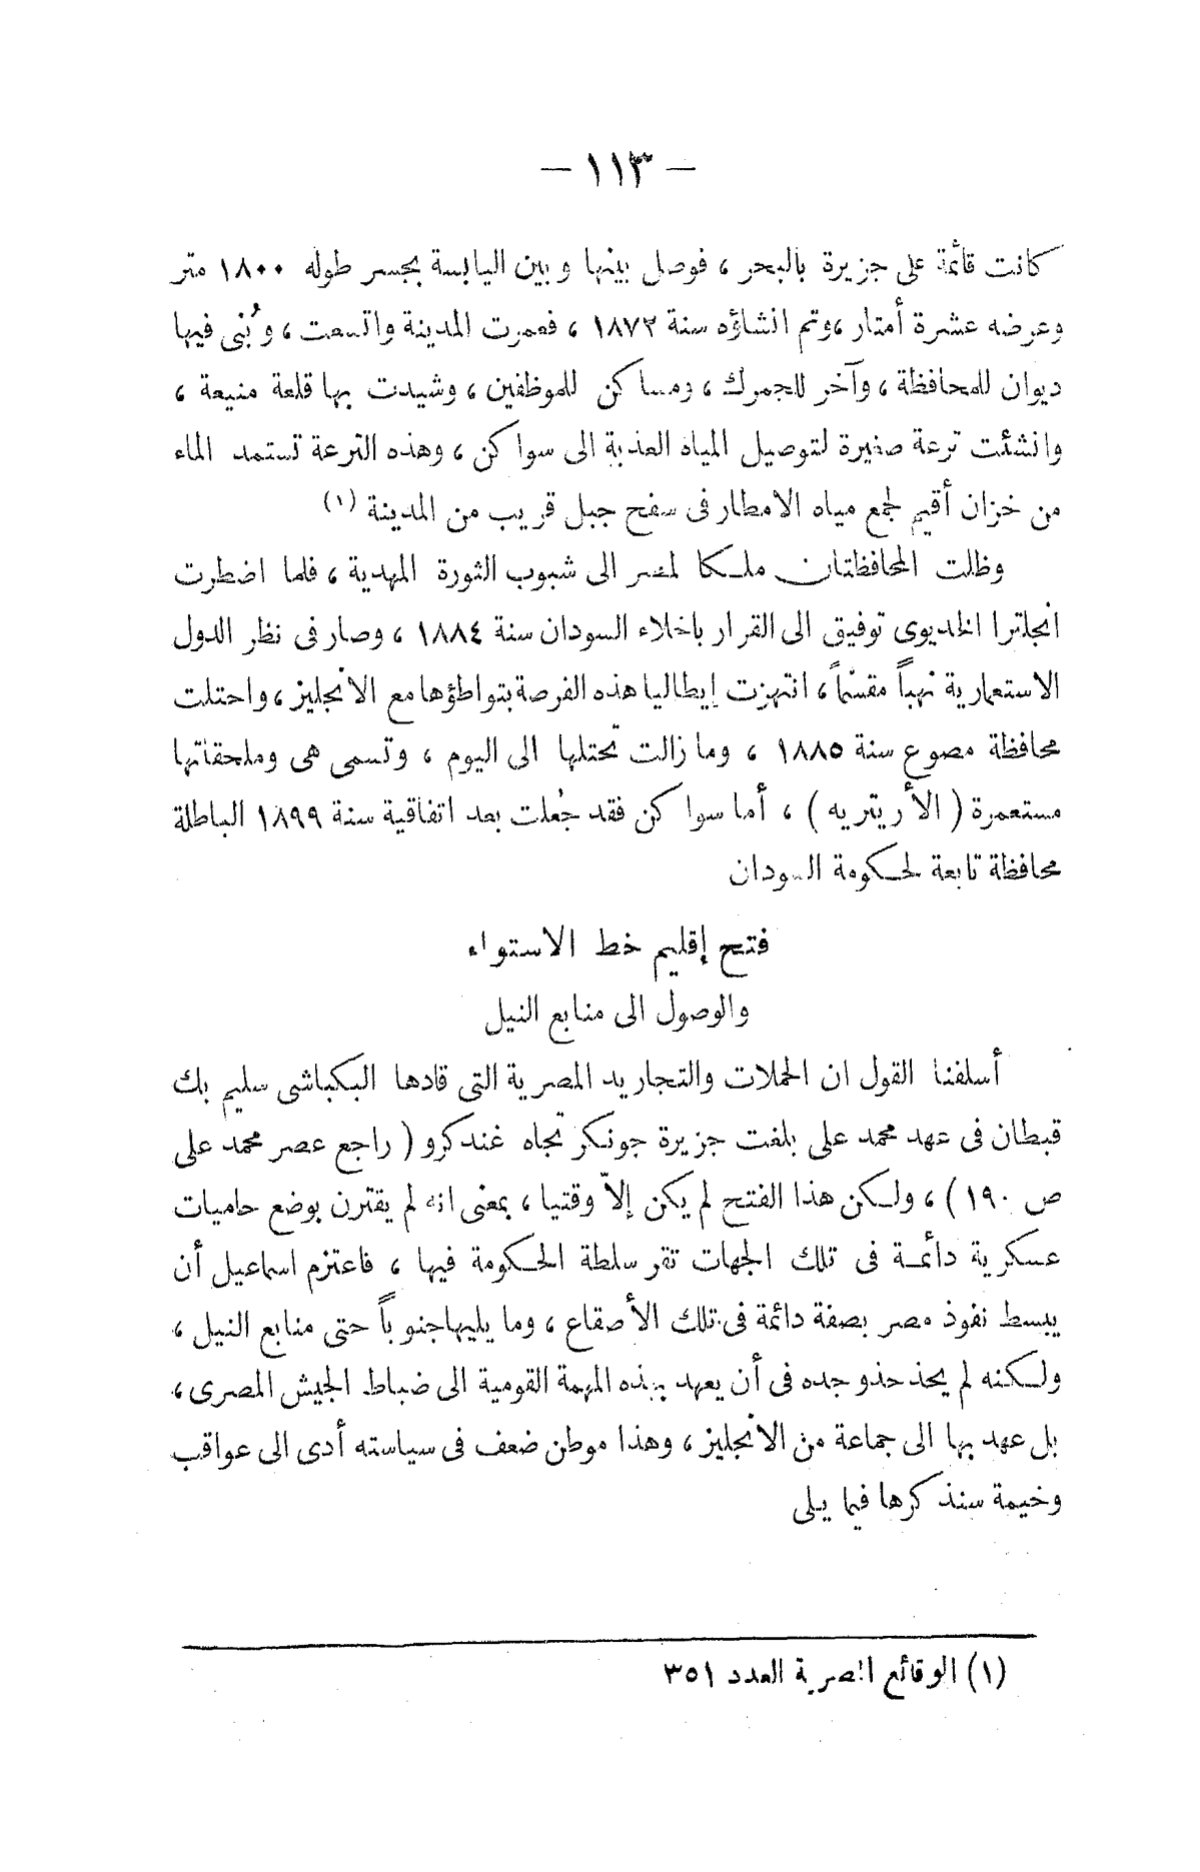 — ١١٣ —
كانت قائمة على جزيرة بالبحر ، فوصل بينها وبين اليابسة بجسر طوله ١٨٠٠ متر
وعرضه عشرة أمتار ، وتم انشاؤه سنة ١٨٧٢ ، فعمرت المدينة واتسعت ، وبُنى فيها
ديوان للمحافظة ، وآخر للجمرك ، ومساكن للموظفين ، وشيدت بها قلعة منيعة ،
وانشئت ترعة صغيرة لتوصيل المياه العذبة الى سواكن ، وهذه الترعة تستمد الماء
من خزان أقيم لجمع مياه الامطار فى سفح جبل قريب من المدينة (١)
وظلت المحافظتان ملكا لمصر الى شبوب الثورة المهدية ، فلما اضطرت
انجلترا الخديوى توفيق الى القرار باخلاء السودان سنة ١٨٨٤ ، وصار فى نظر الدول
الاستعمارية نهباً مقسّماً ، انتهزت إيطاليا هذه الفرصة بتواطؤها مع الانجليز ، واحتلت
محافظة مصوع سنة ١٨٨٥ ، وما زالت تحتلها الى اليوم ، وتسمى هى وملحقاتها
مستعمرة ( الأريتريه ) ، أما سواكن فقد جُعلت بعد اتفاقية سنة ١٨٩٩ الباطلة
محافظة تابعة لحكومة السودان
فتح إقليم خط الاستواء
والوصول الى منابع النيل
أسلفنا القول ان الحملات والتجاريد المصرية التى قادها البكباشى سليم بك
قبطان فى عهد محمد على بلغت جزيرة جونكر تجاه غندكرو ( راجع عصر محمد على
ص ١٩٠ ) ، ولكن هذا الفتح لم يكن إلاّ وقتيا ، بمعنى انه لم يقترن بوضع حاميات
عسكرية دائمة فى تلك الجهات تقر سلطة الحكومة فيها ، فاعتزم اسماعيل أن
يبسط نفوذ مصر بصفة دائمة فى تلك الأصقاع ، وما يليها جنوباً حتى منابع النيل ،
ولكنه لم يحذ حذو جده فى أن يعهد بهذه المهمة القومية الى ضباط الجيش المصرى ،
بل عهد بها الى جماعة من الانجليز ، وهذا موطن ضعف فى سياسته أدى الى عواقب
وخيمة سنذكرها فيما يلى
(١) الوقائع المصرية العدد ٣٥١